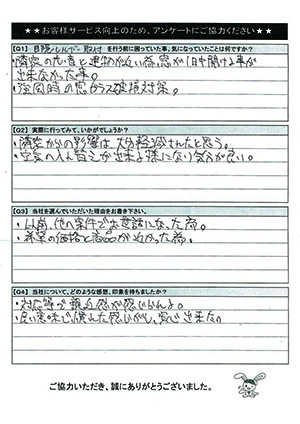 ★★お客様サービス向上のため、アンケートにご協力ください★★
【Q1】目隠しルーバー取付 を行う前に困っていた事、気になっていたことは何ですか?
・隣家の
建物が近い為窓が1日中開ける事が
出来なかった事。
・強風時の窓ガラス破損対策。
【Q2】実際に行ってみて、いかがでしょうか?
・隣家からの影響は大分軽減されたと思う。
・空気の入れ替えが出来る様になり気分が良い。
【Q3】当社を選んでいただいた理由をお書き下さい。
・以前、他の案件でお世話になった為。
・希望の価格と商品が近かった為。
【Q4】当社について、どのような感想、印象を持ちましたか?
・対応等で親近感が感じられた。
・良い意味で慣れた感じがし、安心出来た。
ご協力いただき、誠にありがとうございました。